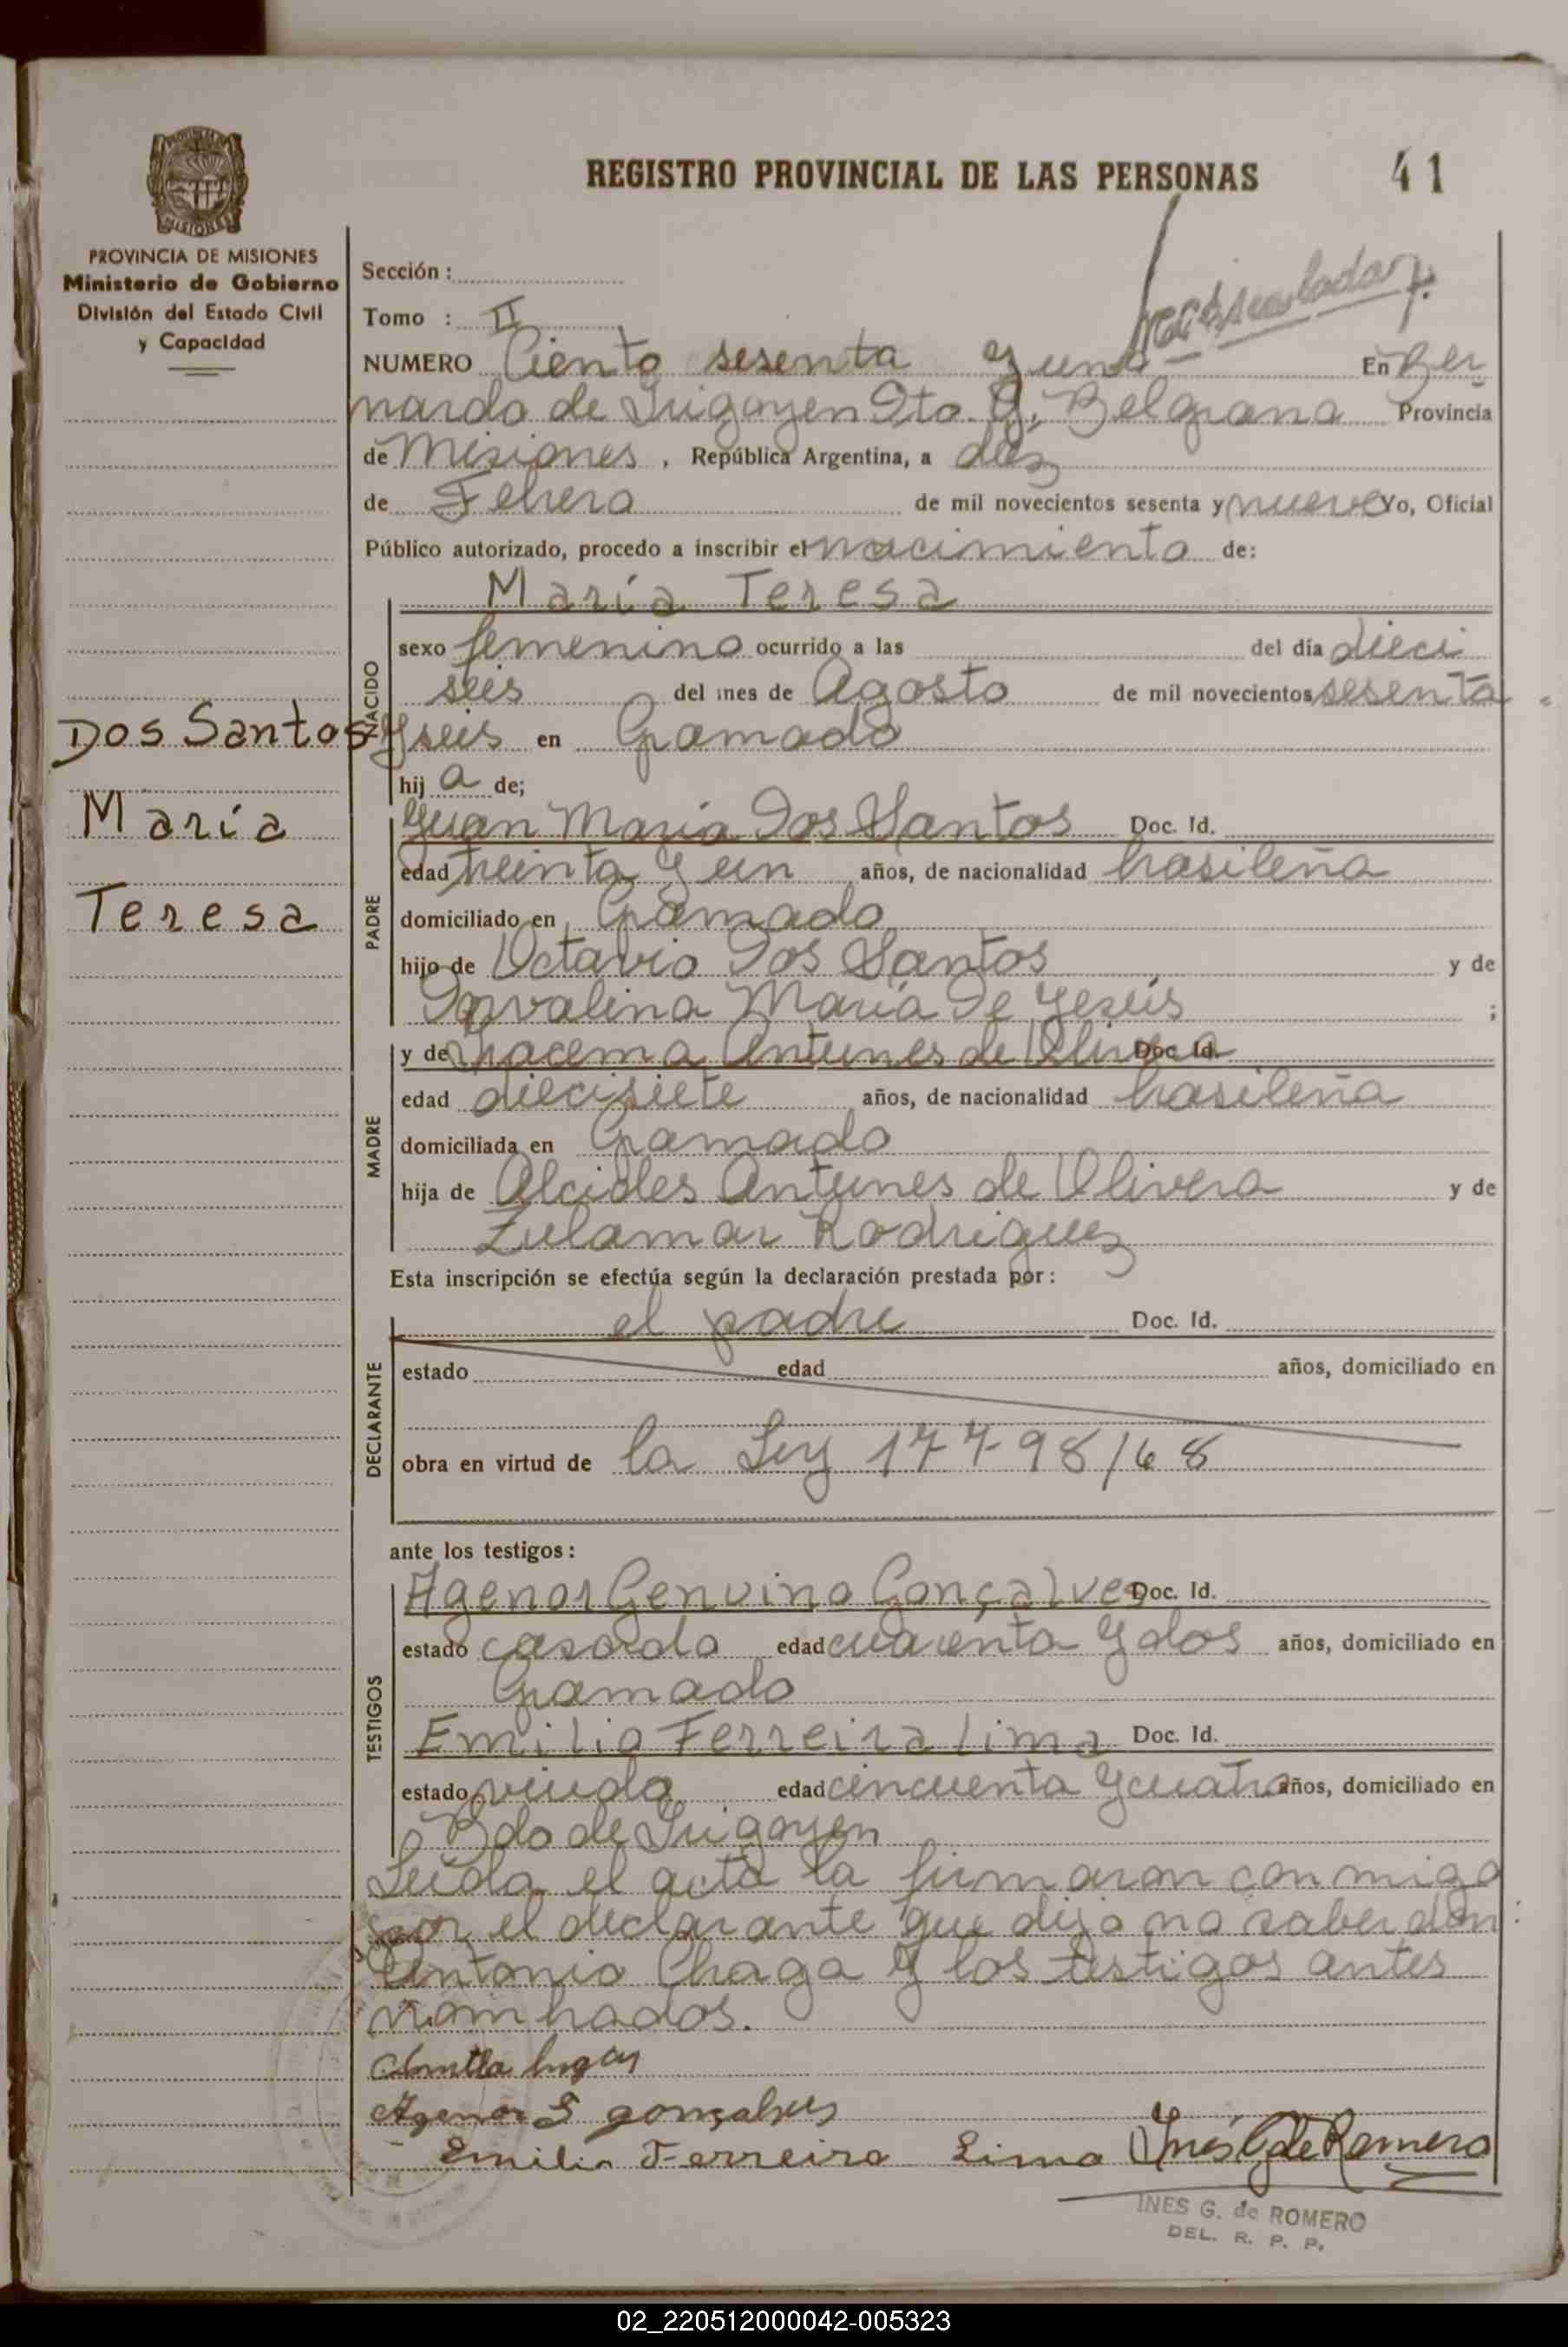 REGISTRO PROVINCIAL DE LAS PERSONAS
41
PROVINCIA DE MISIONES
MISIONES
PROVINCIA DE MISIONES
Ministerio de Gobierno
División del Estado Civil
y Capacidad
Dos Santos
María
Teresa
Sección :
Tomo : II
NUMERO Ciento sesenta y uno En Ber
nardo de Irigoyen Dto. G. Belgrano Provincia
de Misiones, República Argentina, a diez
de Febrero de mil novecientos sesenta y nueve Yo, Oficial
Público autorizado, procedo a inscribir el nacimiento de:
María Teresa
NACIDO
sexo femenino ocurrido a las del día dieci
seis del mes de Agosto de mil novecientos sesenta
y seis en Gramado
hij a de;
PADRE
Juan María Dos Santos Doc. Id.
edad treinta y un años, de nacionalidad brasileña
domiciliado en Gramado
hijo de Octavio Dos Santos y de
María De Jesús ;
MADRE
y de Antunes de Olivera Doc. Id.
edad diecisiete años, de nacionalidad brasileña
domiciliada en Gramado
hija de Alcides Antunes de Olivera y de
Zulamar Rodriguez
Esta inscripción se efectúa según la declaración prestada por:
DECLARANTE
el padre Doc. Id.
estado edad años, domiciliado en
obra en virtud de la Ley 17798/68
ante los testigos:
TESTIGOS
Agenor Genuino Gonçalves Doc. Id.
estado casado edad cuarenta y dos años, domiciliado en
Gramado
Emilia Ferreira Lima Doc. Id.
estado viuda edad cincuenta y cuatro años, domiciliado en
Bdo de Irigoyen
Leída el acta la firmaron conmigo
por el declarante que dijo no saber don:
Antonio Chaga y los testigos antes
nombrados.
Agenor G gonçalves
Emilia Ferreira Lima Inés G de Romero
INES G. de ROMERO
DEL. R. P. P.
02_220512000042-005323